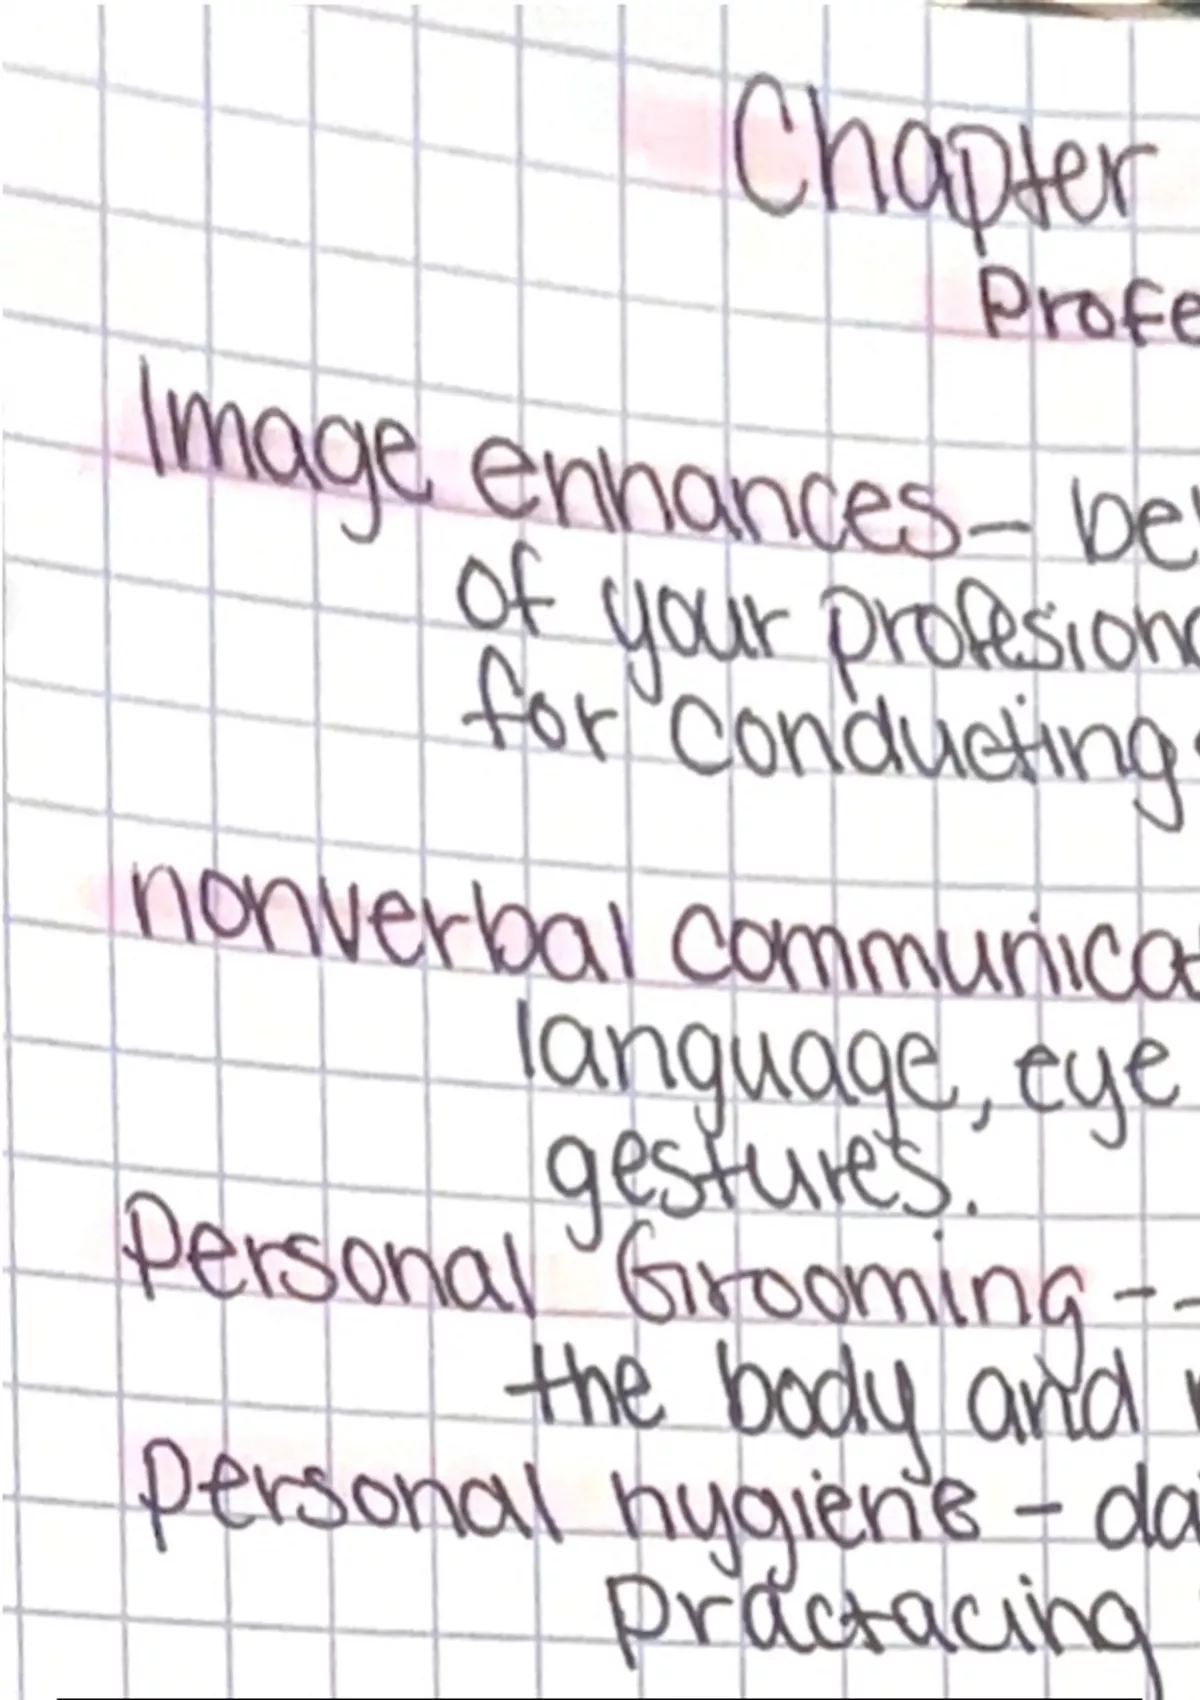 Chapter
Profe
Image enhances - be
of your profesiona
for conducting
nonverbal communicat
language, eye
gestures.
Personal Grooming --
the body and
Personal hygiene - da
Practacing